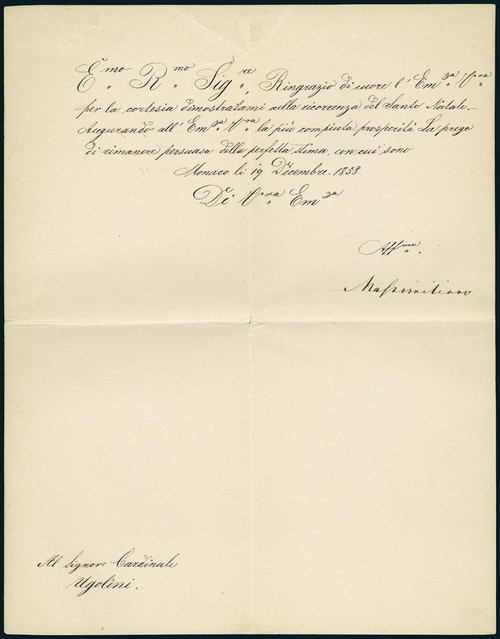 E.mo R.mo Sig.re, Ringrazio di cuore l'Em.za V.ra
per la cortesia dimostratami nella ricorrenza del Santo Natale.
Augurando all'Em.za V.ra la più compiuta prosperità La prego
di rimanere persuasa della perfetta stima, con cui sono
Monaco li 19 Decembre. 1858.
Di V.ra Em.za
Aff.mo
Massimiliano
Al Signore Cardinale
Ugolini.